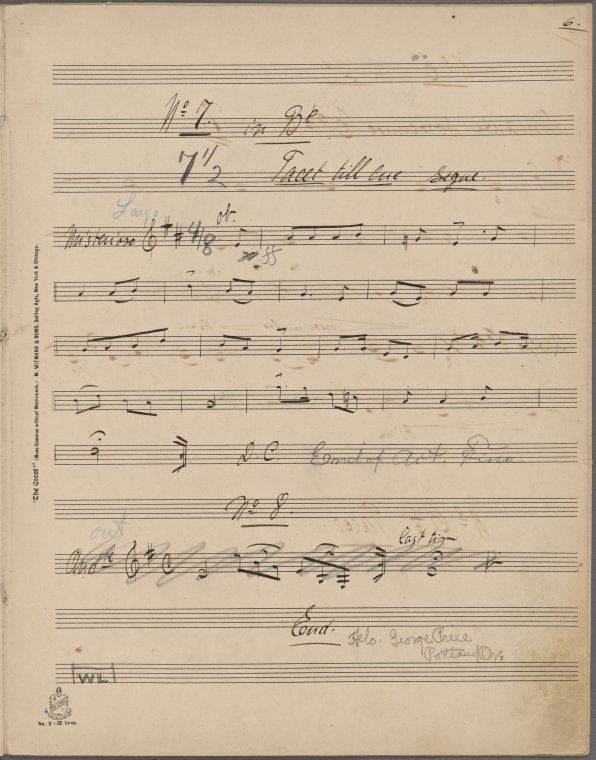 6.
No 7. in Bb
7 1/2 Tacet till cue Segue.
Largo
Misterioso 4/8 ob.
ff
D.C. End of Act. Fine
No 8.
out
Andte last time
End.
Helo. George Price
Portland Org
WL
No. 2-12 lines.
"The Crest" (None Genuine without Watermark.) M. WITMARK & SONS, Selling Agts. New York & Chicago.